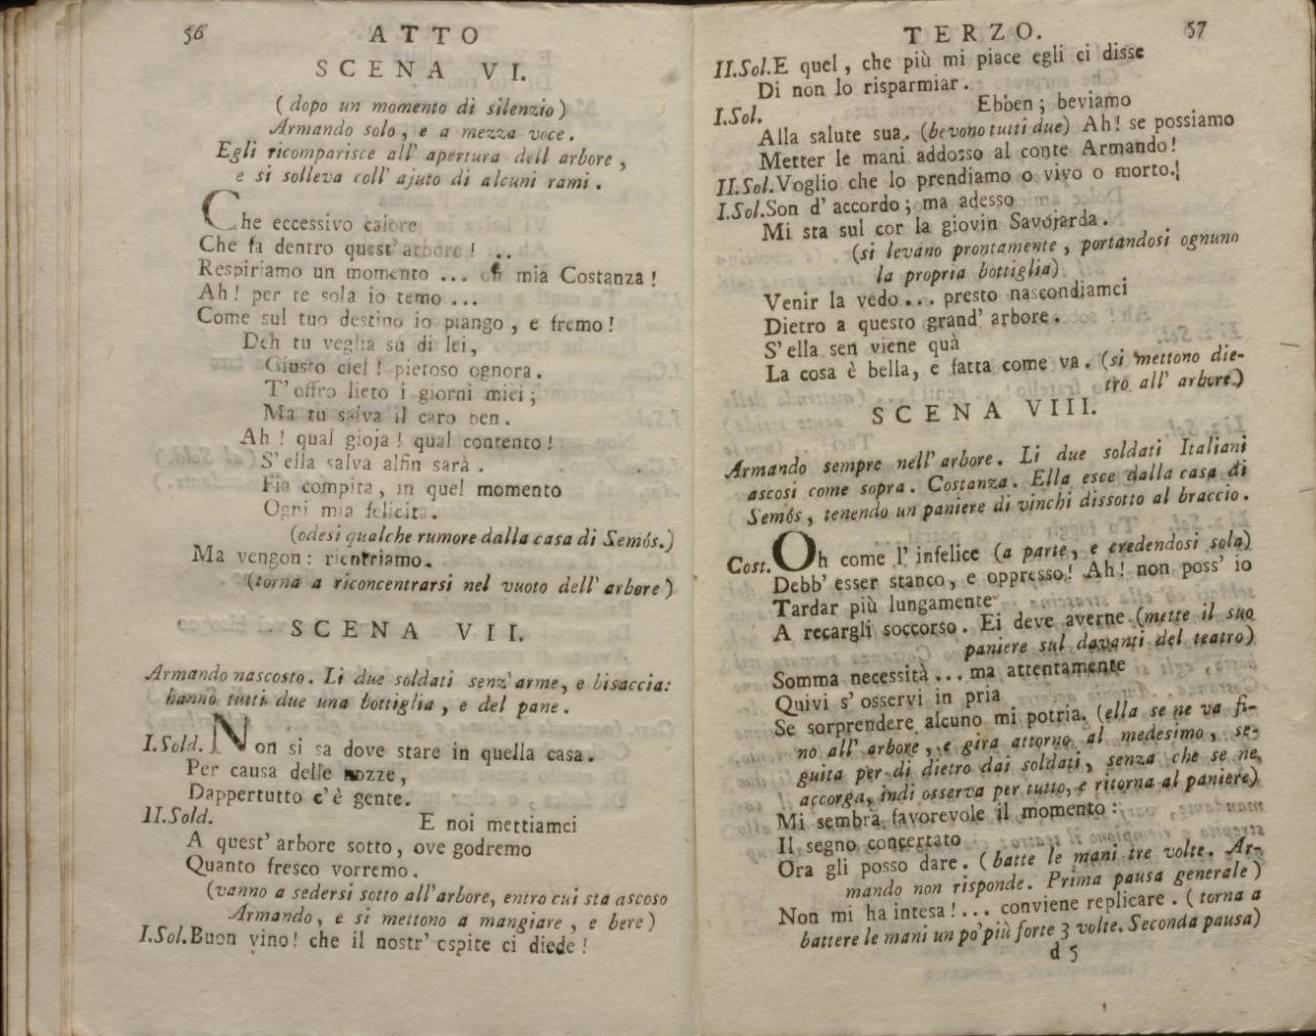 56 ATTO
SCENA VI.
(dopo un momento di silenzio)
Armando solo, e a mezza voce.
Egli ricomparisce all' apertura dell arbore,
e si solleva coll' ajuto di alcuni rami.
Che eccessivo calore
Che fa dentro quest' arbore! ..
Respiriamo un momento ... oh mia Costanza!
Ah! per te sola io temo ...
Come sul tuo destino io piango, e fremo!
Deh tu veglia su di lei,
Giusto ciel! pietoso ognora.
T' offro lieto i giorni miei;
Ma tu salva il caro ben.
Ah! qual gioja! qual contento!
S' ella salva alfin sarà.
Fia compita, in quel momento
Ogni mia felicità.
(odesi qualche rumore dalla casa di Semós.)
Ma vengon: rientriamo.
(torna a riconcentrarsi nel vuoto dell' arbore)
SCENA VII.
Armando nascosto. Li due soldati senz' arme, e bisaccia:
hanno tutti due una bottiglia, e del pane.
I.Sold. Non si sa dove stare in quella casa.
Per causa delle nozze,
Dappertutto c'è gente.
II.Sold. E noi mettiamci
A quest' arbore sotto, ove godremo
Quanto fresco vorremo.
(vanno a sedersi sotto all'arbore, entro cui sta ascoso
Armando, e si mettono a mangiare, e bere)
I.Sol.Buon vino! che il nostr' ospite ci diede!
TERZO. 57
II.Sol.E quel, che più mi piace egli ci disse
Di non lo risparmiar.
I.Sol. Ebben; beviamo
Alla salute sua. (bevono tutti due) Ah! se possiamo
Metter le mani addosso al conte Armando!
II.Sol.Voglio che lo prendiamo o vivo o morto.
I.Sol.Son d' accordo; ma adesso
Mi sta sul cor la giovin Savojarda.
(si levano prontamente, portandosi ognuno
la propria bottiglia)
Venir la vedo... presto nascondiamci
Dietro a questo grand' arbore.
S' ella sen viene quà
La cosa è bella, e fatta come va. (si mettono die-
tro all' arbore.)
SCENA VIII.
Armando sempre nell' arbore. Li due soldati Italiani
ascosi come sopra. Costanza. Ella esce dalla casa di
Semós, tenendo un paniere di vinchi dissotto al braccio.
Cost. Oh come l' infelice (a parte, e credendosi sola)
Debb' esser stanco, e oppresso! Ah! non poss' io
Tardar più lungamente
A recargli soccorso. Ei deve averne (mette il suo
paniere sul davanti del teatro)
Somma necessità ... ma attentamente
Quivi s' osservi in pria
Se sorprendere alcuno mi potria. (ella se ne va fi-
no all' arbore, e gira attorno al medesimo, se-
guita per di dietro dai soldati, senza che se ne
accorga, indi osserva per tutto, e ritorna al paniere)
Mi sembra favorevole il momento:
Il segno concertato
Ora gli posso dare. (batte le mani tre volte. Ar-
mando non risponde. Prima pausa generale)
Non mi ha intesa!... conviene replicare. (torna a
battere le mani un po' più forte 3 volte. Seconda pausa)
d 5